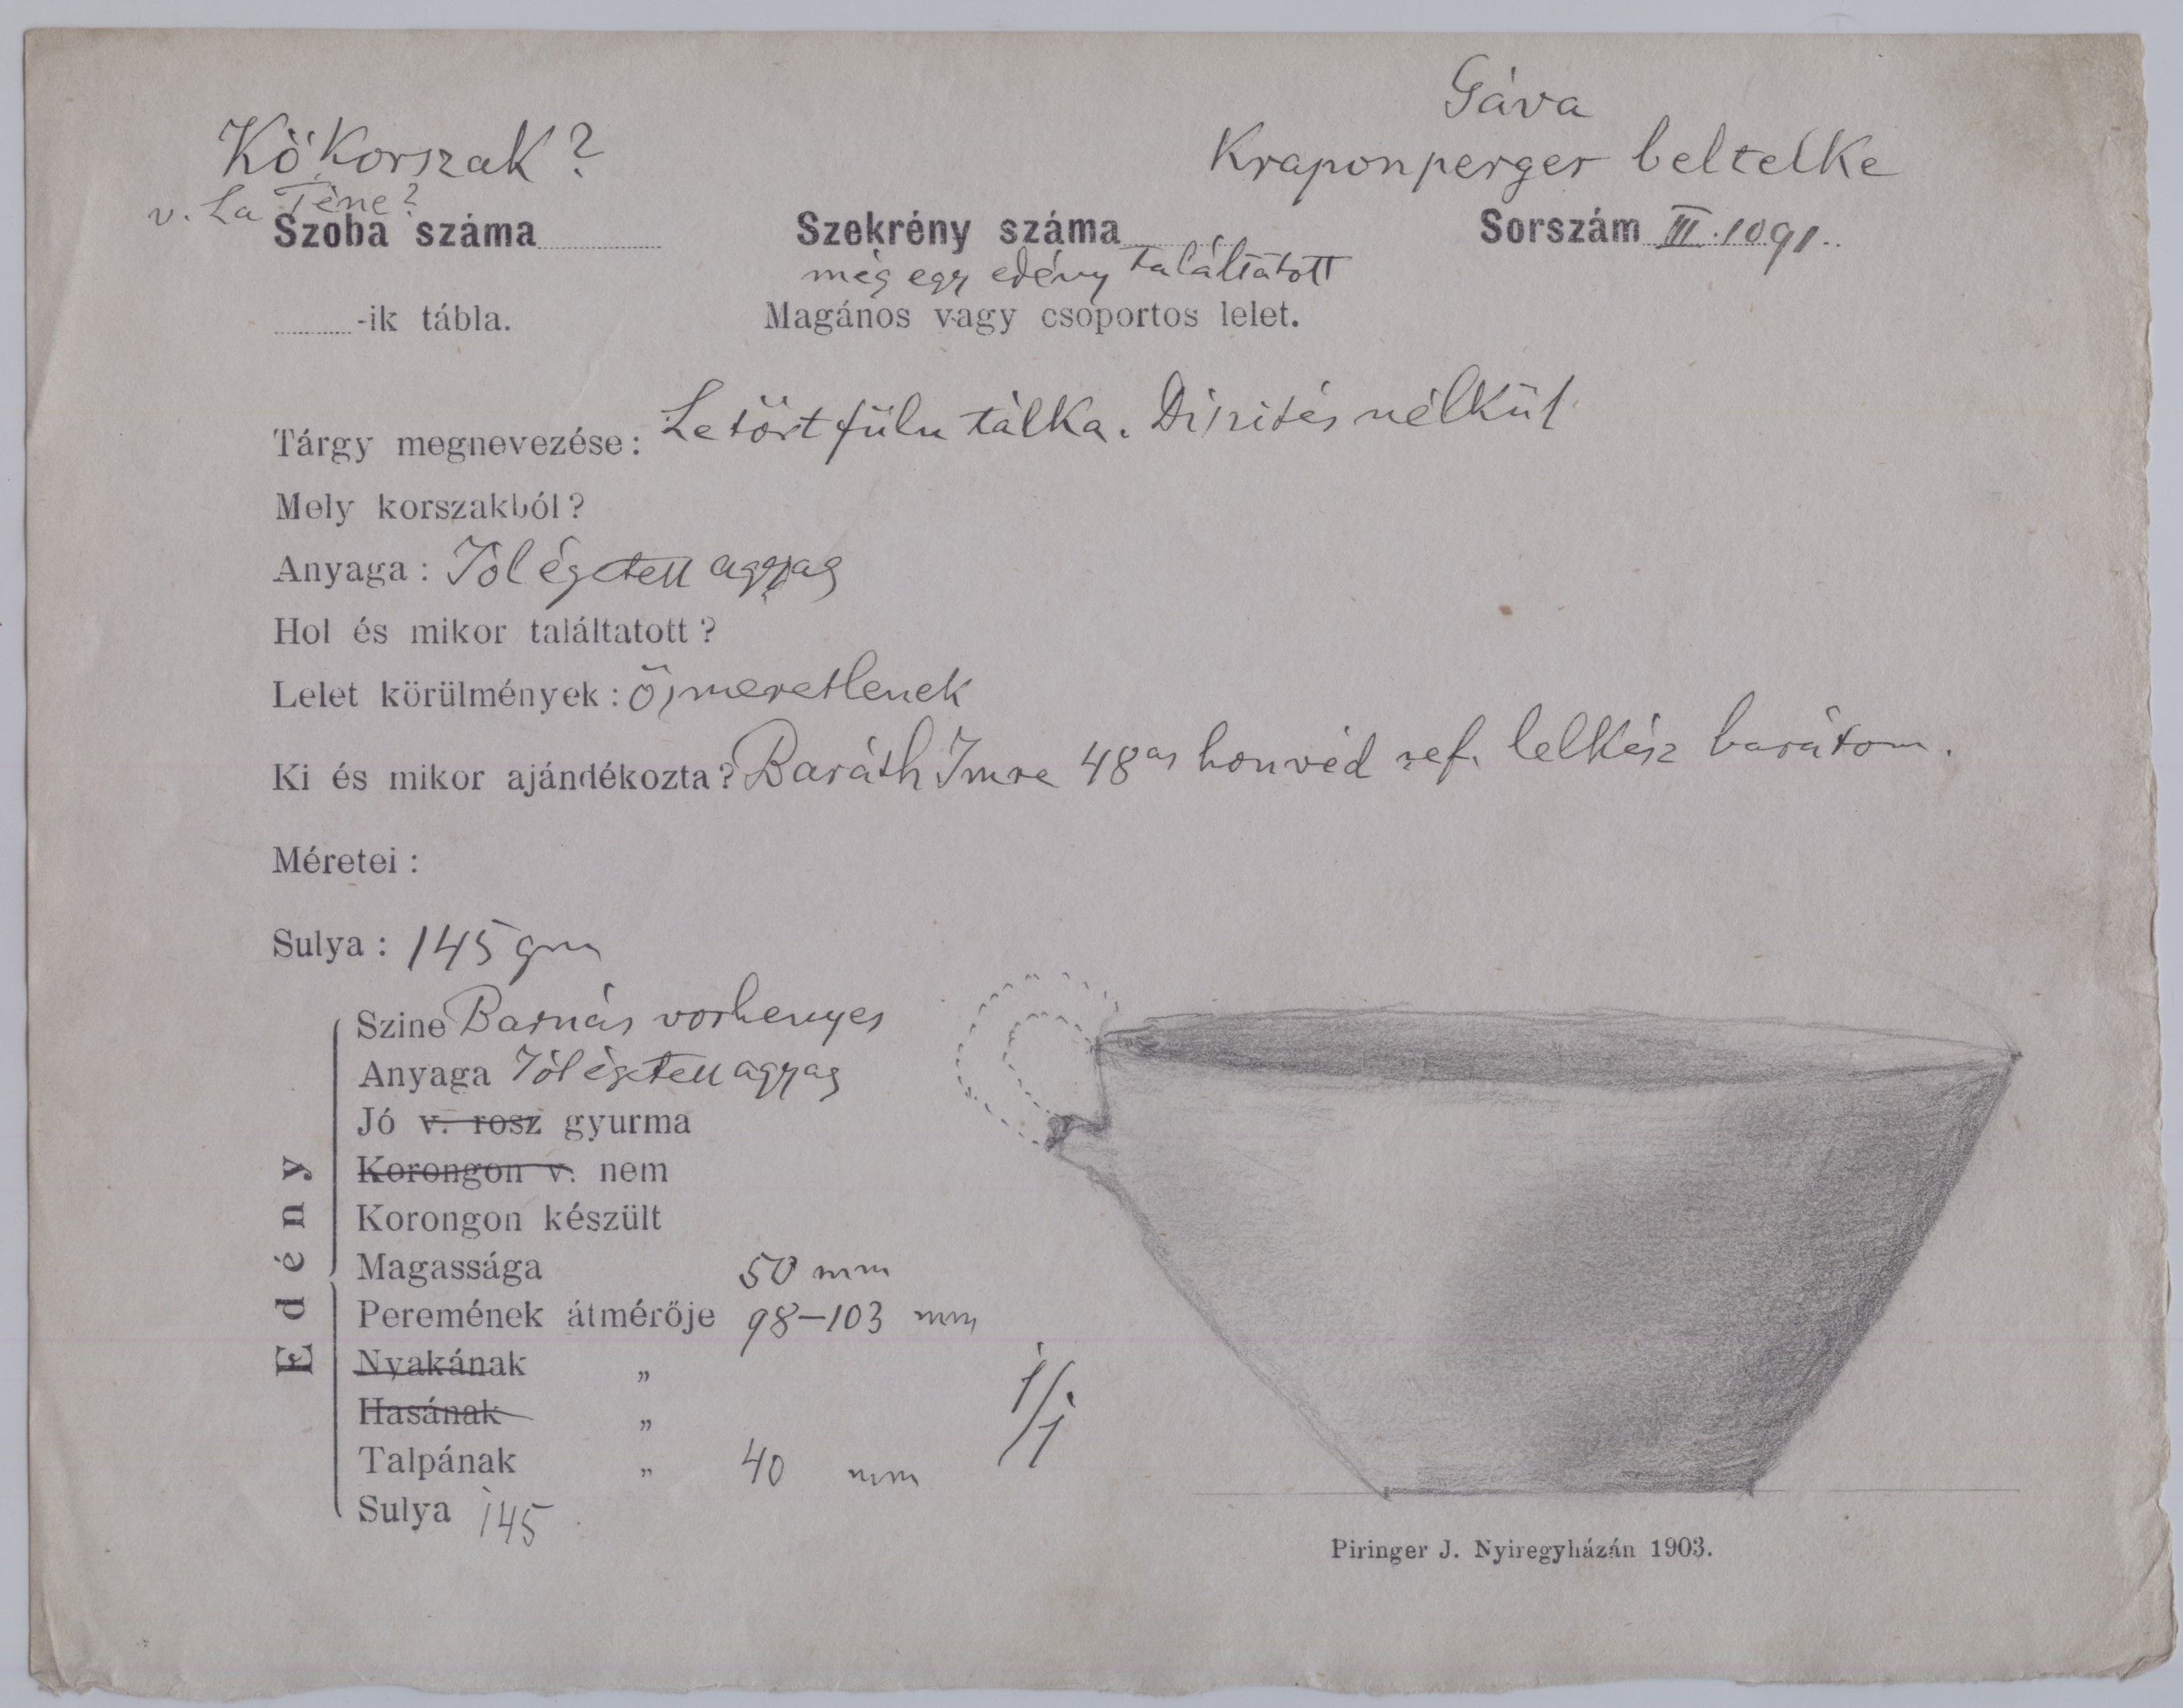 Gáva
Kőkorszak?
Kraponperger beltelke
v. La Téne?
Szoba száma
Szekrény száma
Sorszám III. 1091.
még egy edény találtatott
-ik tábla.
Magános vagy csoportos lelet.
Tárgy megnevezése: Letört fülü tálka. Diszités nélkül
Mely korszakból?
Anyaga: Jól égetett agyag
Hol és mikor találtatott?
Lelet körülmények: ösmeretlenek
Ki és mikor ajándékozta? Baráth Imre 48as honvéd ref. lelkész barátom.
Méretei:
Sulya: 145 gm
Edény
Szine Barnás vörhenyes
Anyaga Jól égetett agyag
Jó v. rosz gyurma
Korongon v. nem
Korongon készült
Magassága 50 mm
Peremének átmérője 98–103 mm
Nyakának „
Hasának „
1/1
Talpának „ 40 mm
Sulya 145
Piringer J. Nyiregyházán 1903.